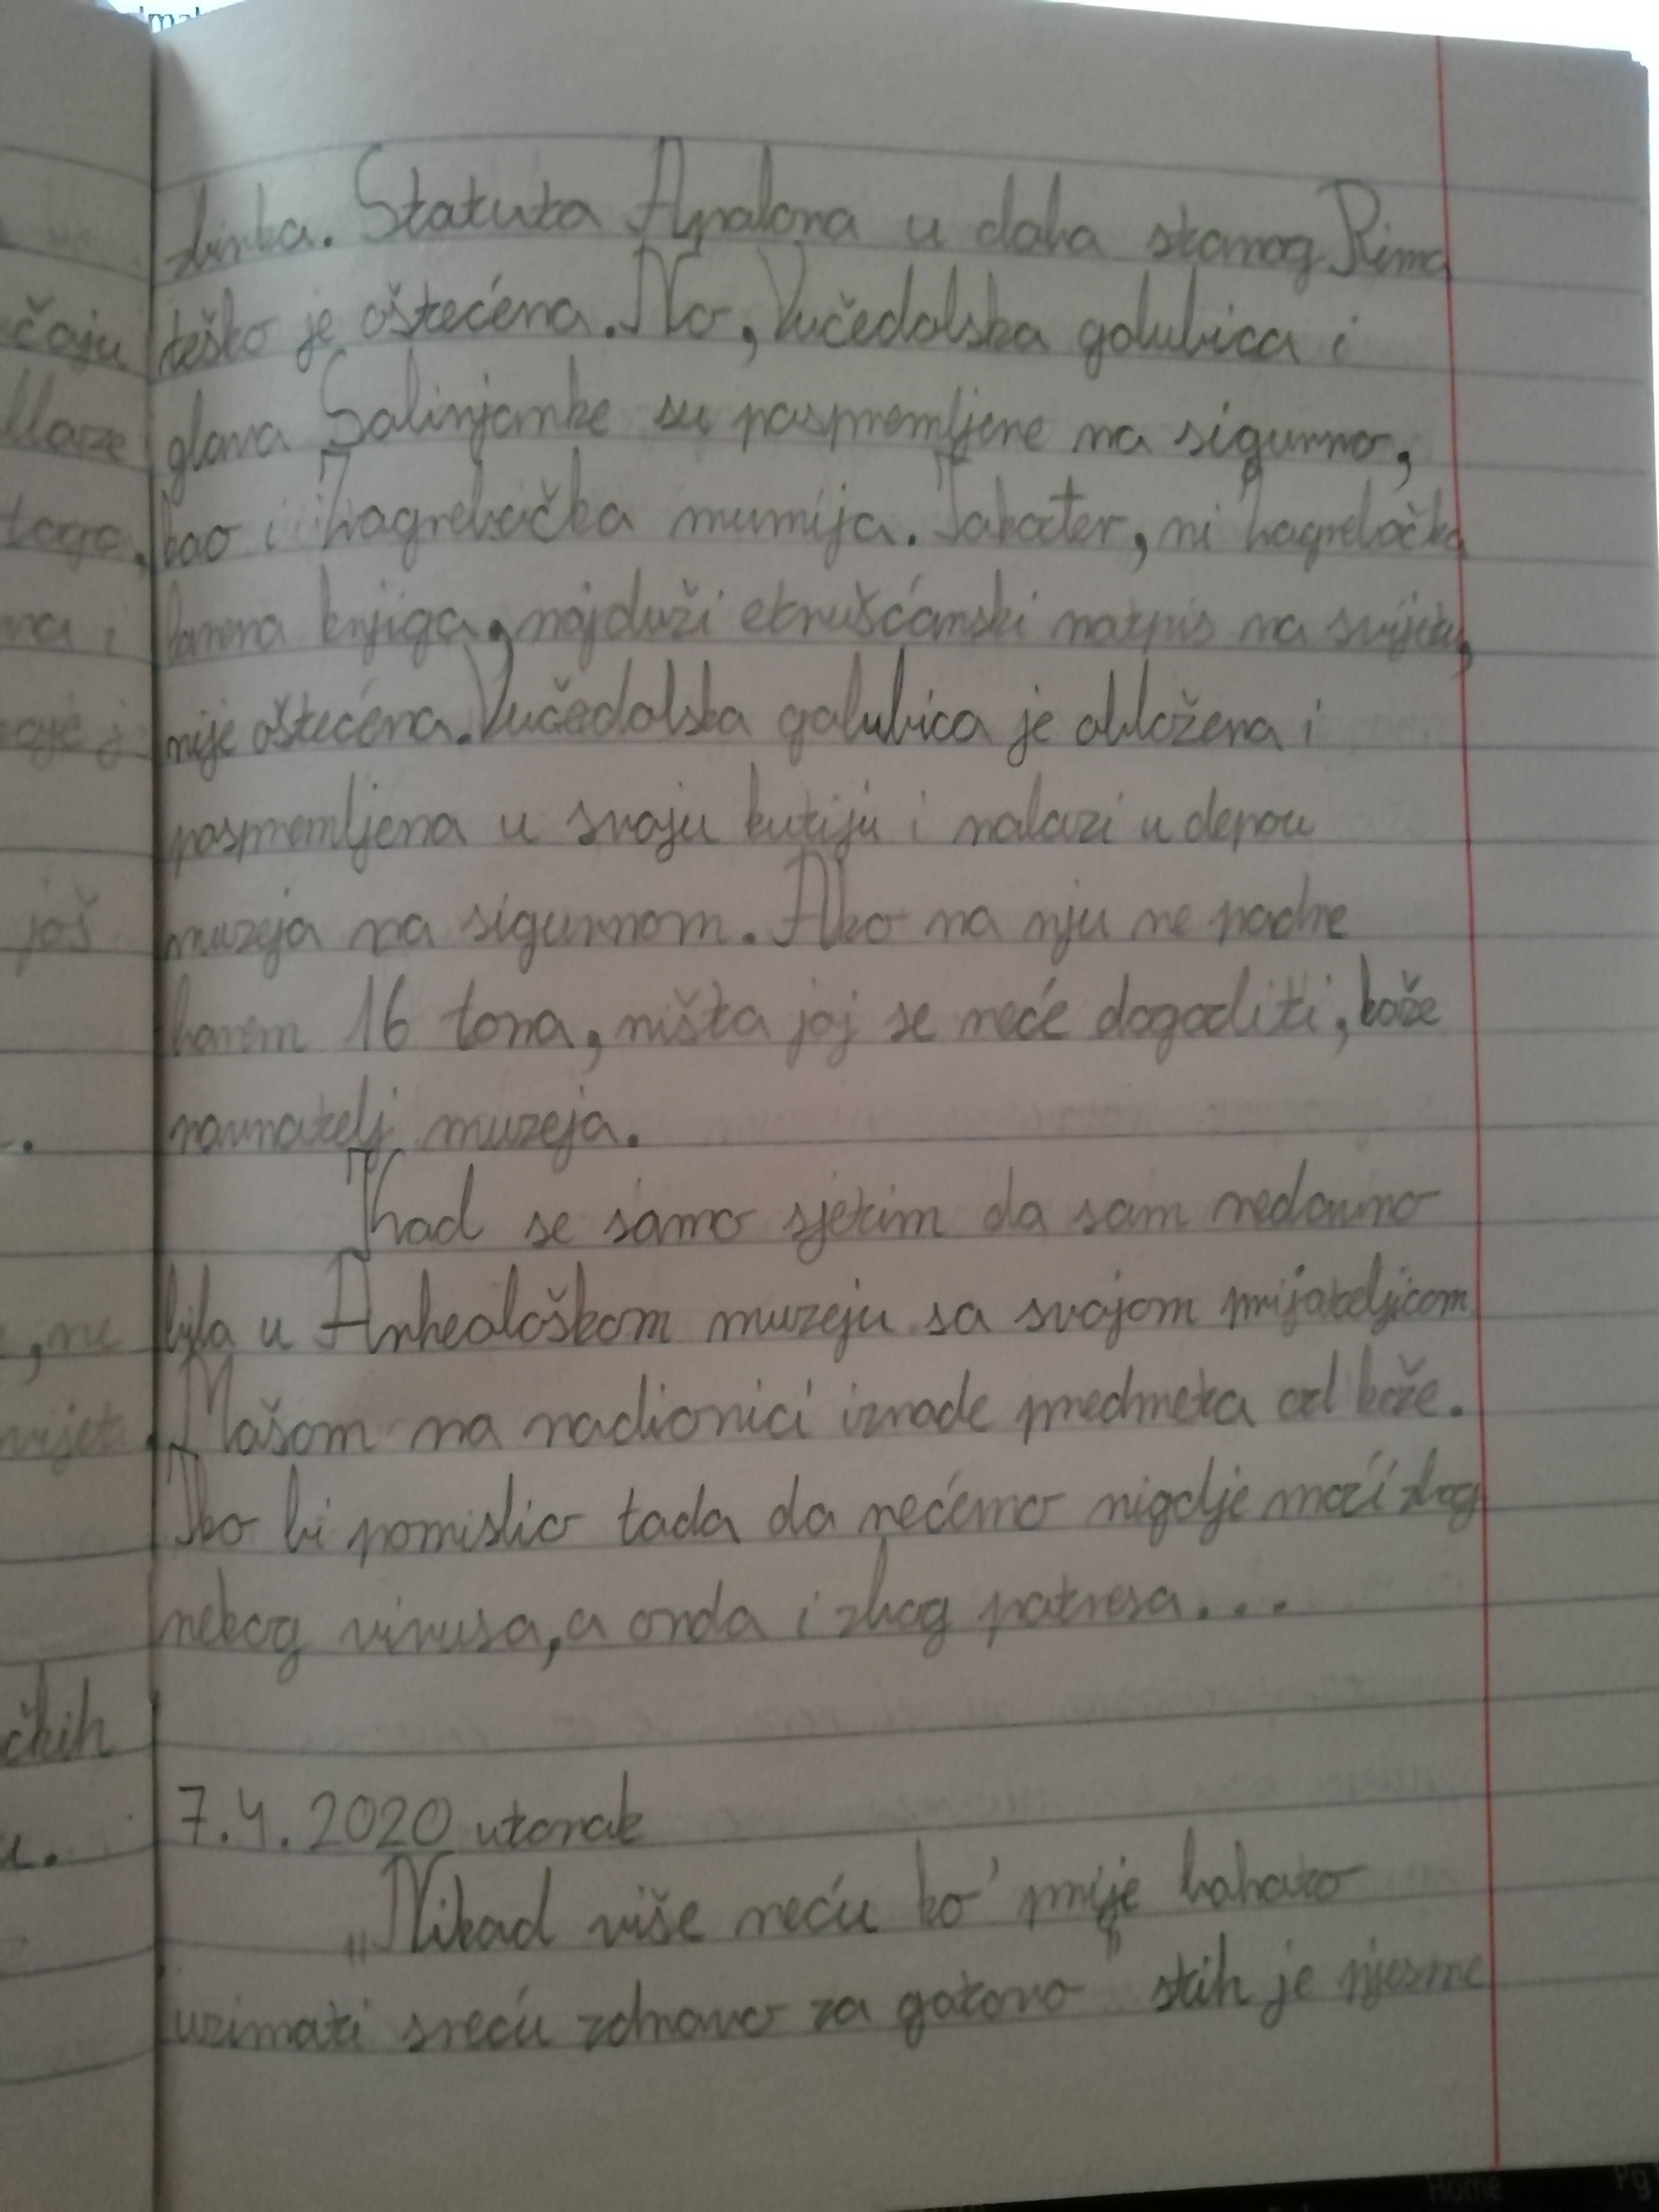 zbirka. Statuta Apolona u doba starog Rima
teško je oštećena. No, Vučedolska golubica i
glava Solinjanke su pospremljene na sigurno,
kao i Zagrebačka mumija. Također, ni Zagrebačka
lanena knjiga, najduži etrušćanski natpis na svijetu,
nije oštećena. Vučedolska golubica je obložena i
pospremljena u svoju kutiju i nalazi u depou
muzeja na sigurnom. Ako na nju ne padne
barem 16 tona, ništa joj se neće dogoditi, kaže
ravnatelj muzeja.
Kad se samo sjetim da sam nedavno
bila u Arheološkom muzeju sa svojom prijateljicom
Mašom na radionici izrade predmeta od kože.
Tko bi pomislio tada da nećemo nigdje moći zbog
nekog virusa, a onda i zbog potresa...
7.4.2020 utorak
„Nikad više neću ko' prije bahato
uzimati sreću zdravo za gotovo" stih je pjesme
čaju
toga,
na i
još
, ne
čkih
Home